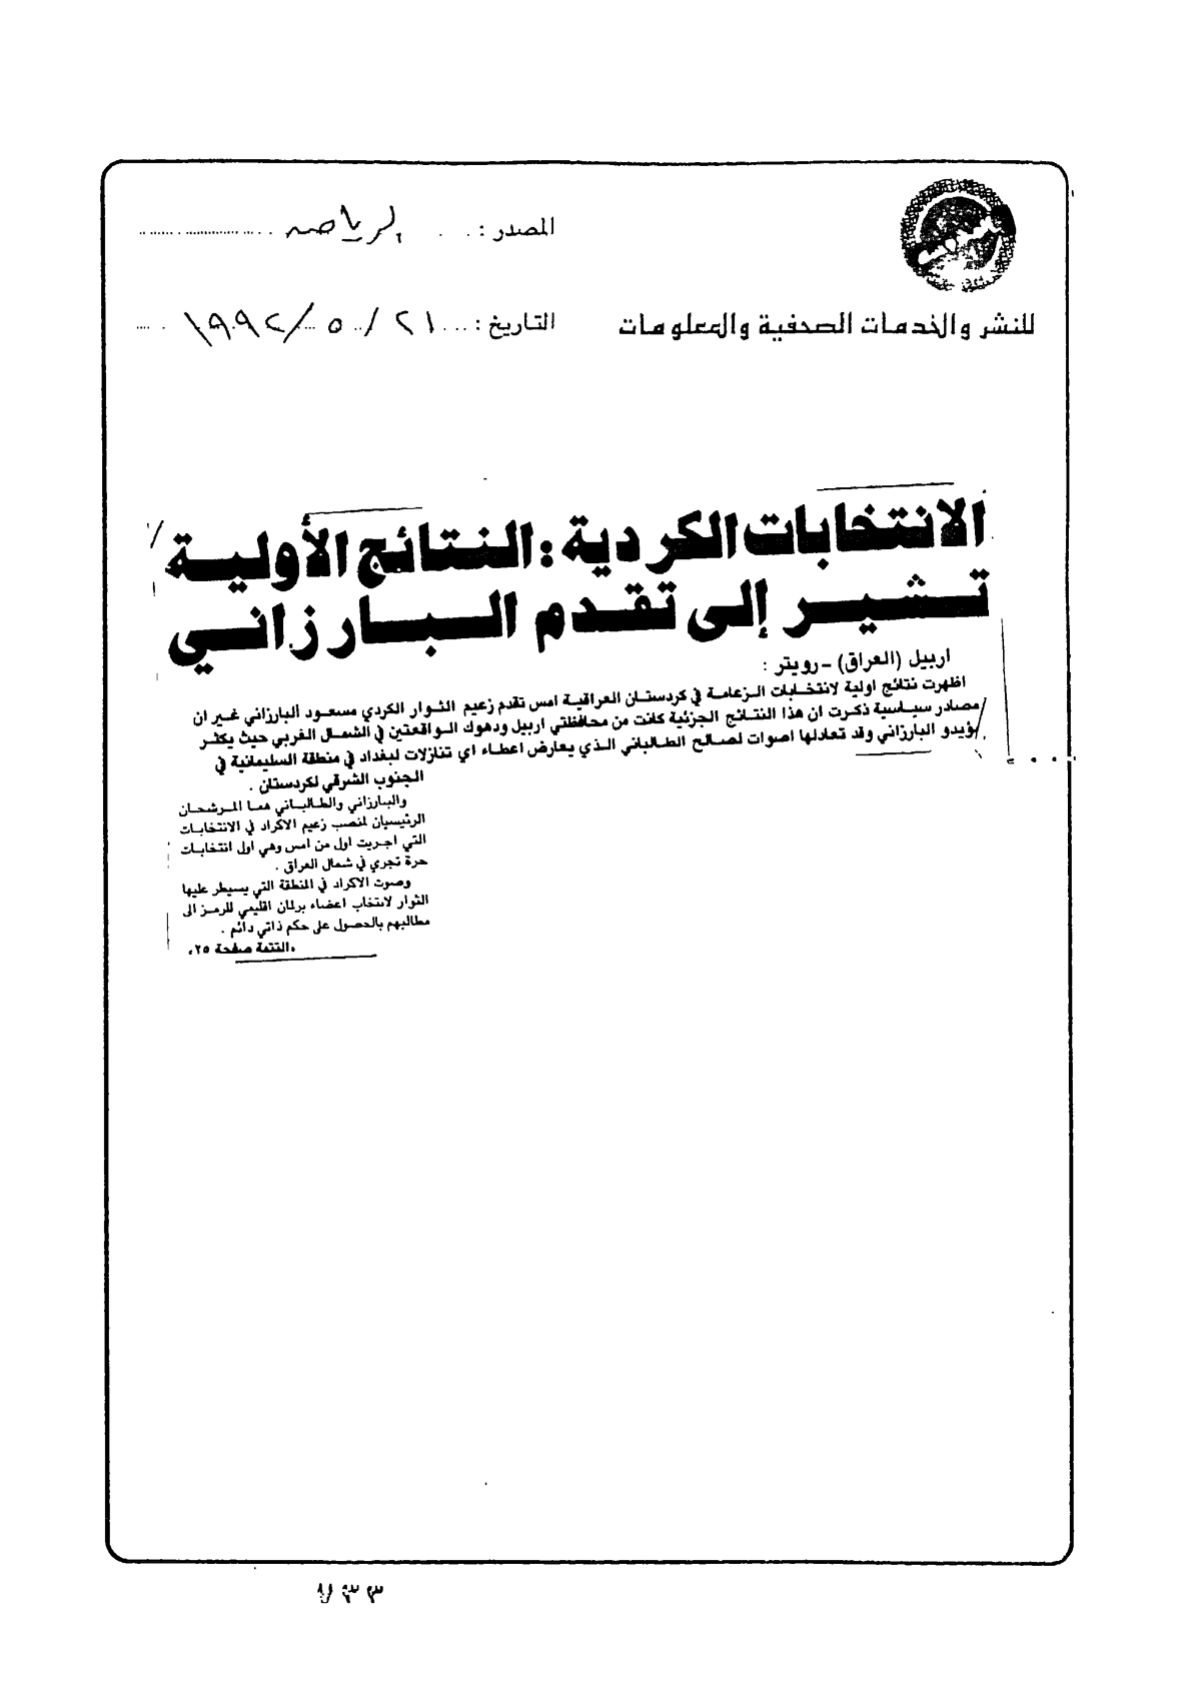 المصدر : الرياض
التاريخ : ٢١ / ٥ / ١٩٩٢
للنشر والخدمات الصحفية والمعلومات
الانتخابات الكردية : النتائج الأولية
تشير إلى تقدم البارزاني
اربيل (العراق) - رويتر :
اظهرت نتائج اولية لانتخابات الزعامة في كردستان العراقية امس تقدم زعيم الثوار الكردي مسعود البارزاني غير ان
مصادر سياسية ذكرت ان هذا النتائج الجزئية كانت من محافظتي اربيل ودهوك الواقعتين في الشمال الغربي حيث يكثر
مؤيدو البارزاني وقد تعادلها اصوات لصالح الطالباني الذي يعارض اعطاء اي تنازلات لبغداد في منطقة السليمانية في
الجنوب الشرقي لكردستان .
والبارزاني والطالباني هما المرشحان
الرئيسيان لمنصب زعيم الاكراد في الانتخابات
التي اجريت اول من امس وهي اول انتخابات
حرة تجري في شمال العراق .
وصوت الاكراد في المنطقة التي يسيطر عليها
الثوار لانتخاب اعضاء برلمان اقليمي للرمز الى
مطالبهم بالحصول على حكم ذاتي دائم .
«التتمة صفحة ٢٥»